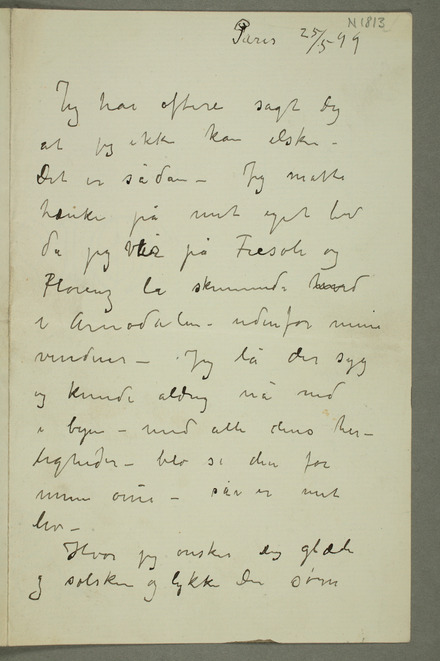 N 1813
Paris 25/5-99
Jeg har oftere sagt dig
at jeg ikke kan elske -
Det er sådan - Jeg måtte
tænke på mit eget liv
da jeg var på Fiesole og
Florenz lå skinnende hvid
i Arnodalen - udenfor mine
vinduer - Jeg lå der syg
og kunde aldrig nå ned
i byen - med alle dens her-
ligheder - blo se den for
mine øine - så er mit
liv -
Hvor jeg ønsker dig glæde
og solskin og lykke Du som